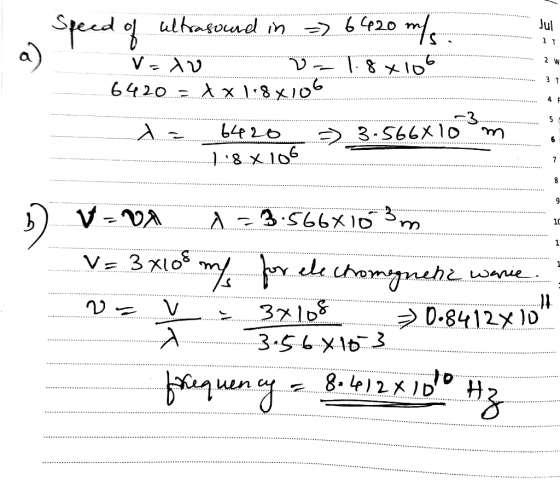 Speed of ultrasound in => 6420 m/s.
a) V = λν ν = 1.8 × 10⁶
6420 = λ × 1.8 × 10⁶
λ = 6420 / 1.8 × 10⁶ => 3.566 × 10⁻³ m
b) V = νλ λ = 3.566 × 10⁻³ m
V = 3 × 10⁸ m/s for electromegnetic wave.
ν = V / λ = 3 × 10⁸ / 3.56 × 10⁻³ => 0.8412 × 10¹¹
frequency = 8.412 × 10¹⁰ Hz
Jul
1 T
2 W
3 T
4 F
5
6
7
8
9
10